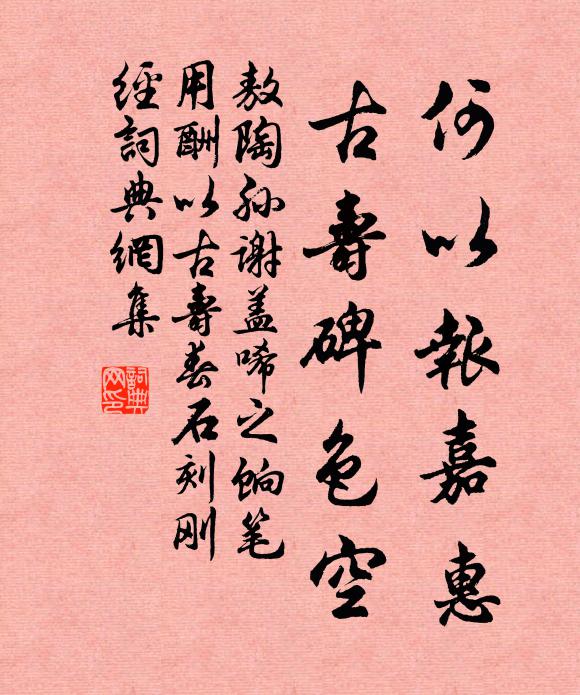 何以報嘉惠
古壽碑色空
敖陶孫謝盖唏之餉笔
用酬以古壽春石刻剛
經詞典網集
詞典
网印